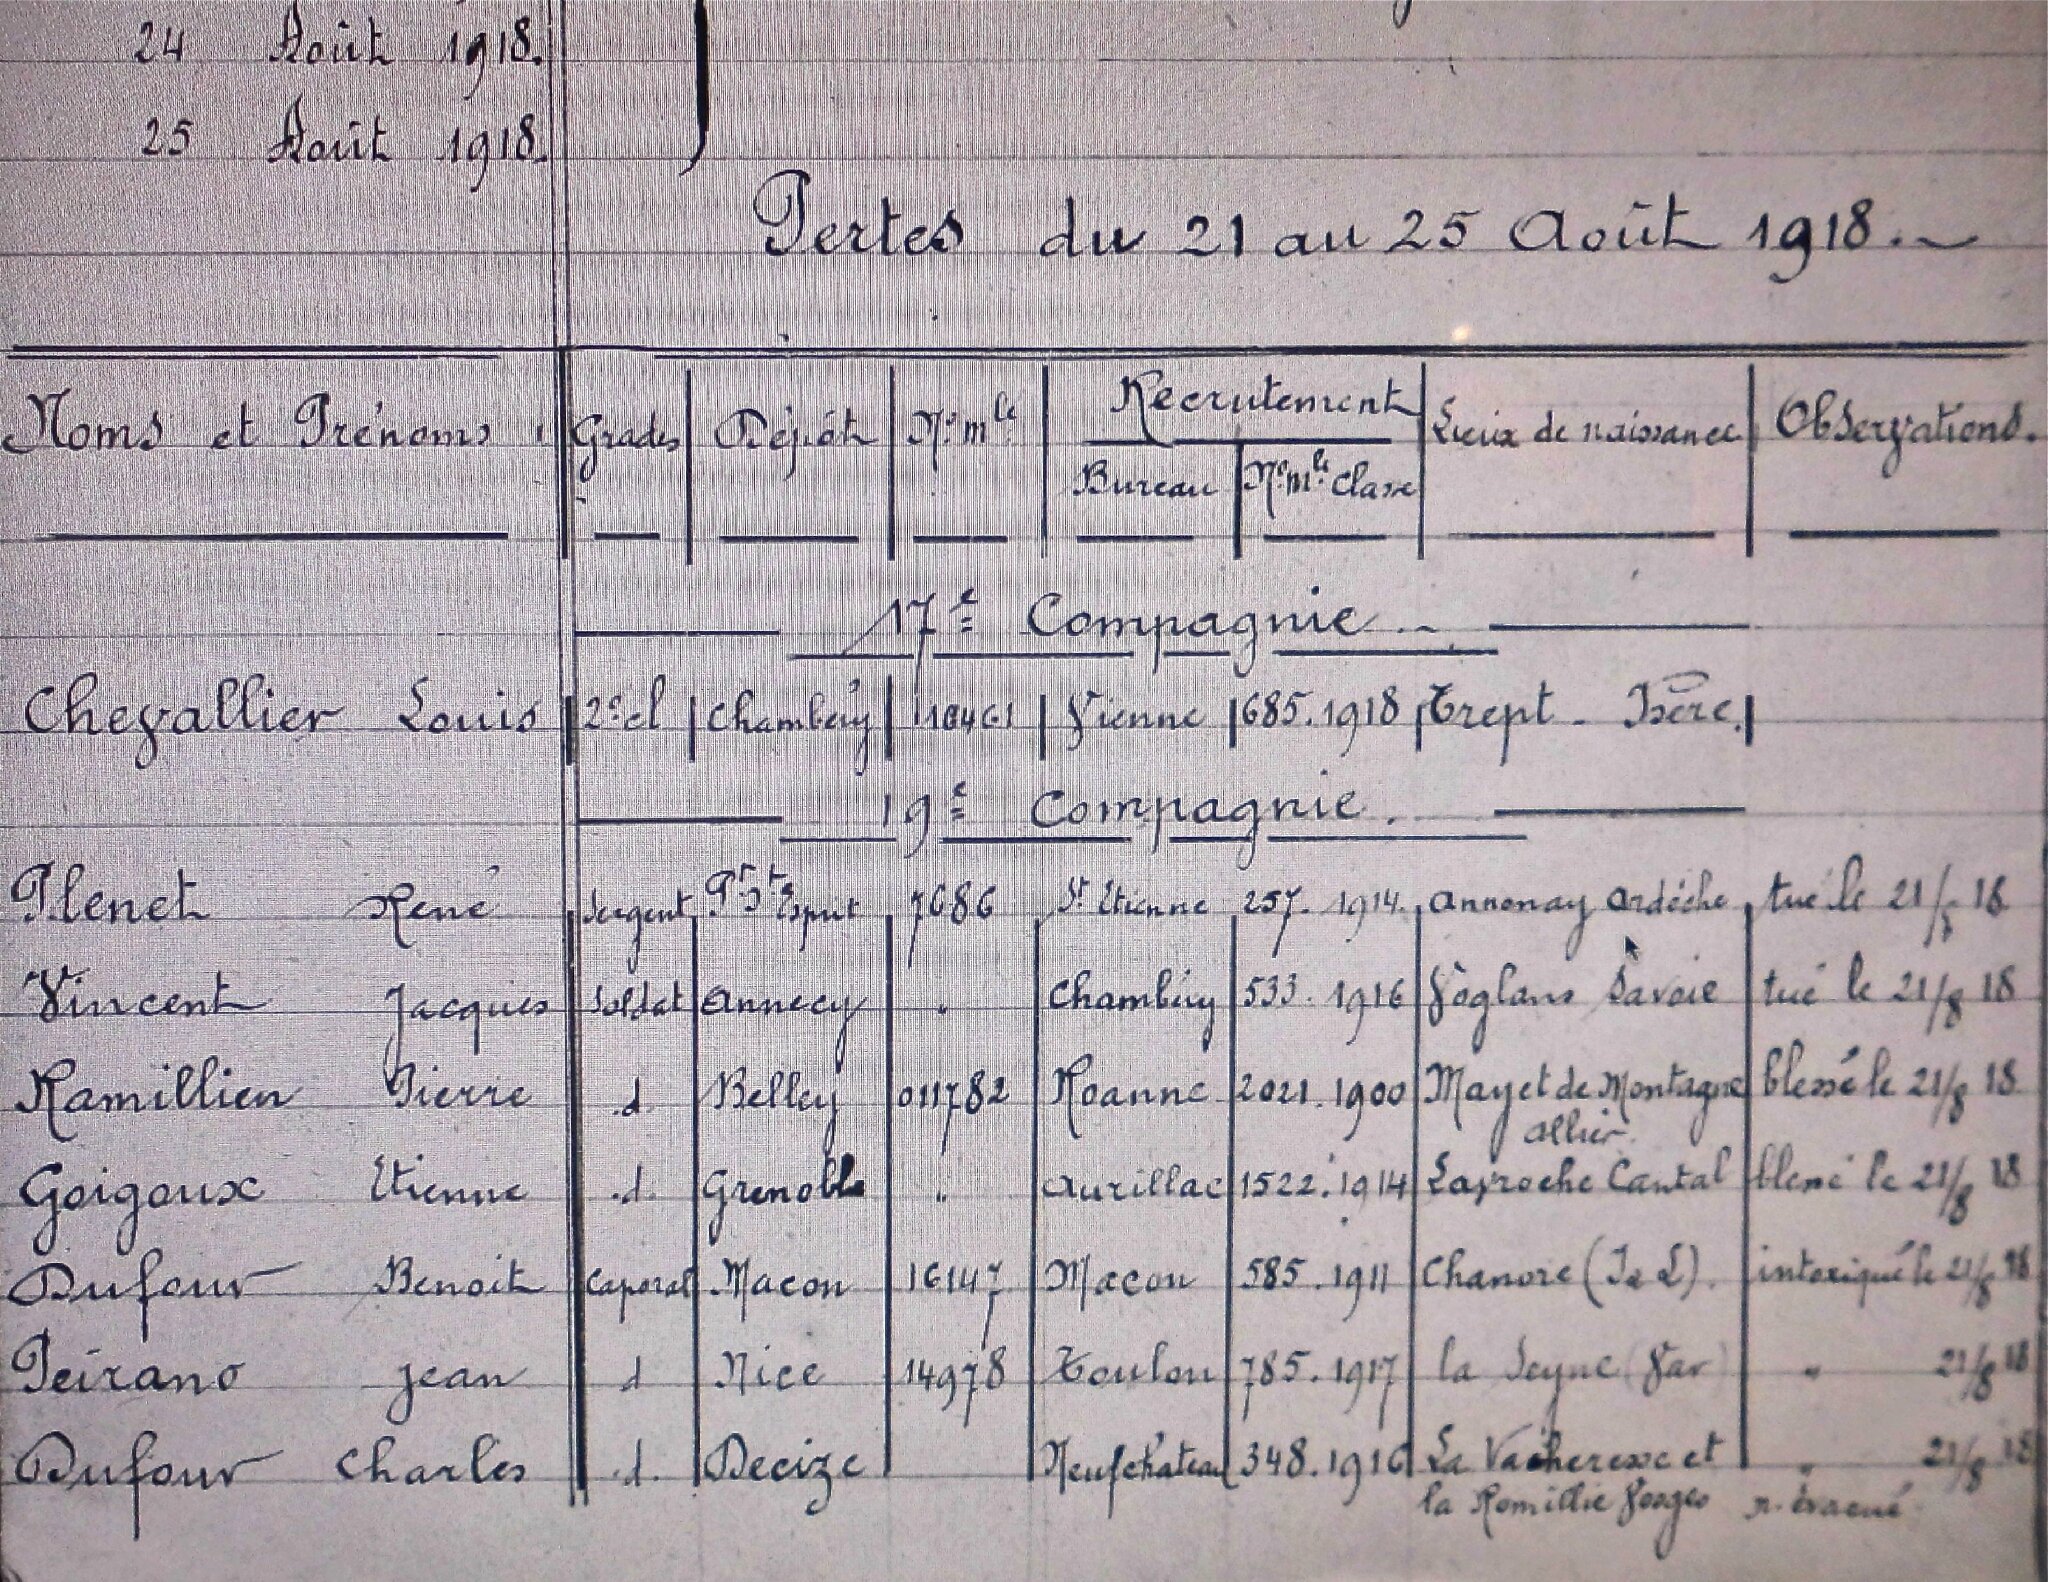 24 Août 1918.
25 Août 1918.
Pertes du 21 au 25 Août 1918.
Noms et Prénoms Grades Dépôt N° mle Recrutement Lieux de naissance Observations.
Bureau N° mle Classe
17e Compagnie.
Chevallier Louis 2e cl Chambéry 10461 Vienne 685.1918 Trept - Isère.
19e Compagnie.
Plenet René Sergent Pt St Esprit 7686 St Etienne 257. 1914. Annonay Ardèche tué le 21/8 18
Vincent Jacques Soldat Annecy " Chambéry 533. 1916 Voglans Savoie tué le 21/8 18
Ramillien Pierre d Belley 011782 Roanne 2021.1900 Mayet de Montagne blessé le 21/8 18
Allier.
Goigoux Etienne d. Grenoble " Aurillac 1522.1914 Laroche Cantal blessé le 21/8 18
Dufour Benoit Caporal Macon 16147 Macon 585.1911 (S & L). intoxiqué le 21/8 18
Peirano Jean d Nice 14978 Toulon 785.1917 la Seyne (Var) " 21/8 18
Dufour Charles d. Decize Neufchateau 348.1916 La Vacheresse et " 21/8 18
la Romillie Vosges n. évacué